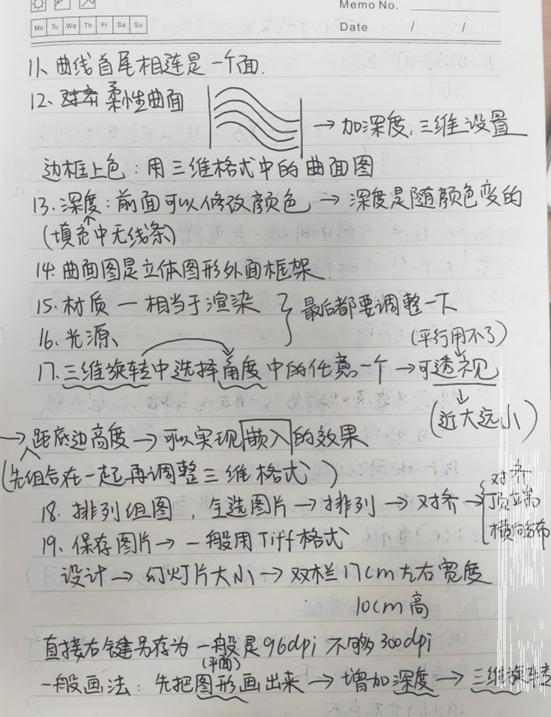 Memo No.
Mo Tu We Th Fr Sa Su
Date / /
11、曲线首尾相连是一个面.
12、柔性曲面 → 加深度,三维设置
边框上色：用三维格式中的曲面图
13、深度：前面可以修改颜色 → 深度是随颜色变的
(填充中无线条)
14、曲面图是立体图形外面框架.
15、材质 — 相当于渲染 } 最后都要调整一下
16、光源、
(平行用不了)
17、三维旋转中选择角度中的任意一个 → 可透视
(近大远小)
→ 距底边高度 → 可以实现嵌入的效果
(先组合在一起再调整三维格式)
18、排列组图，全选图片 → 排列 → 对齐 → 对齐
横向分布
19、保存图片 → 一般用Tiff格式
设计 → 幻灯片大小 → 双栏17cm左右宽度
10cm高
直接右键另存为一般是96dpi 不够300dpi
(平面)
一般画法：先把图形画出来 → 增加深度 → 三维旋转